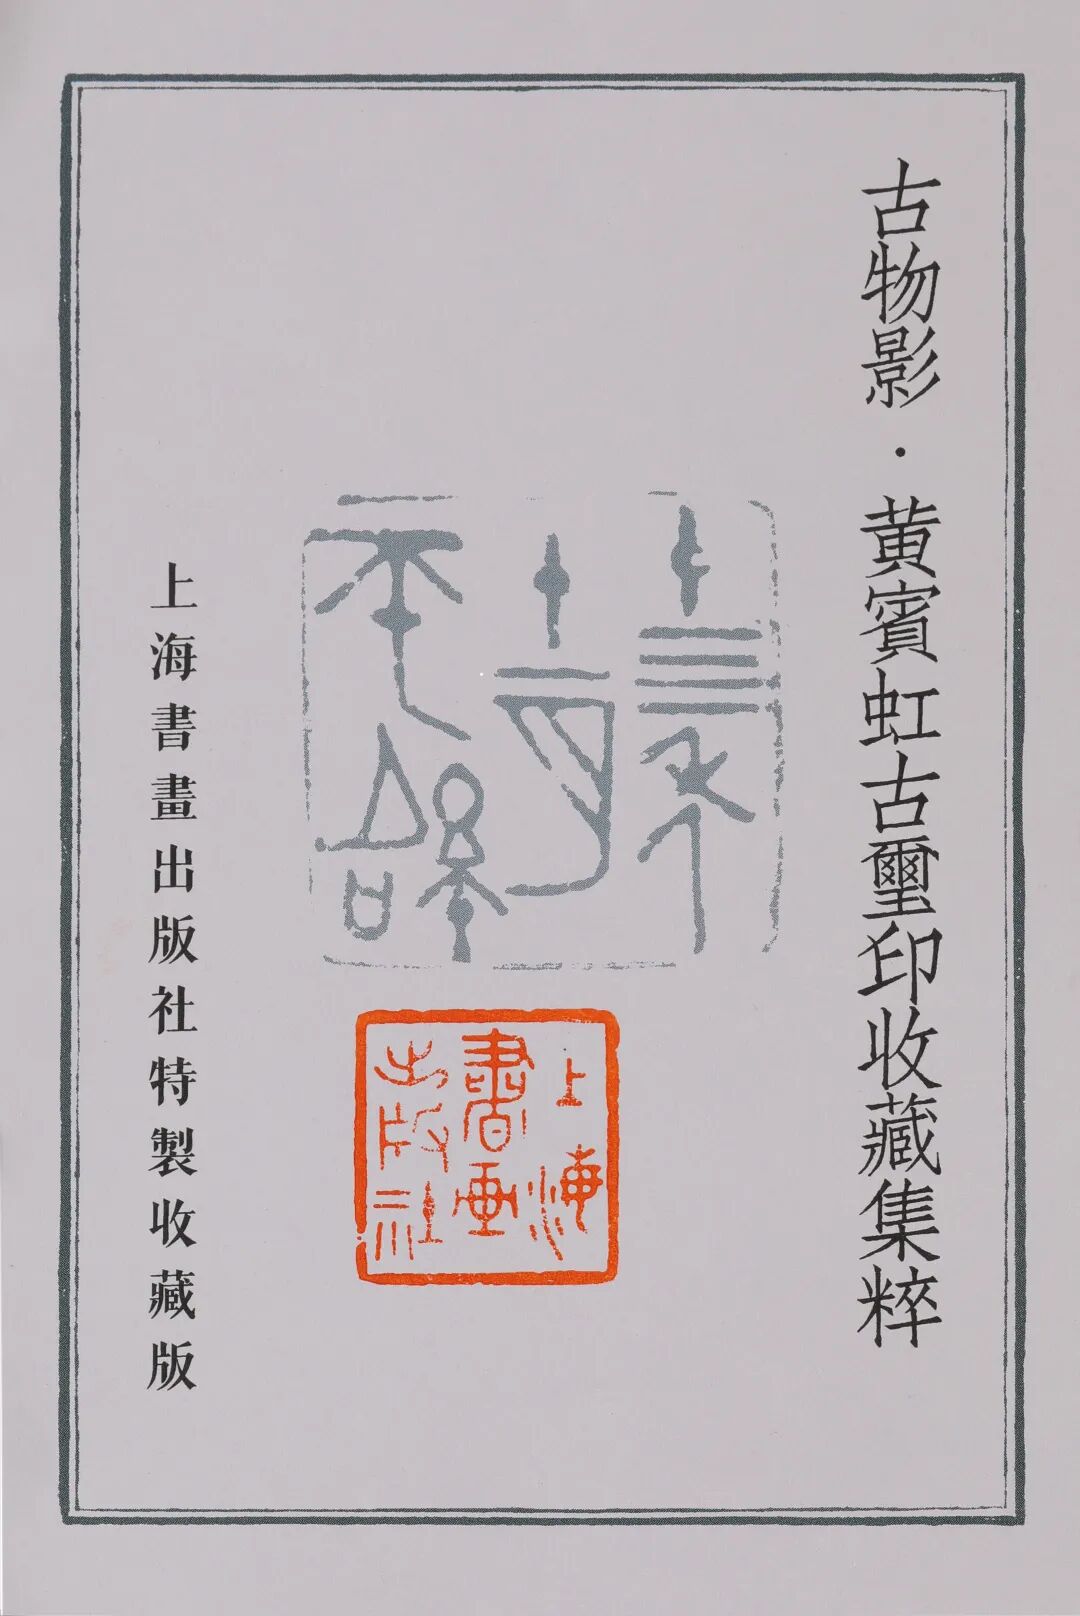 古物影·黄賓虹古璽印收藏集粹
上海書画出版社
上海書畫出版社特製收藏版